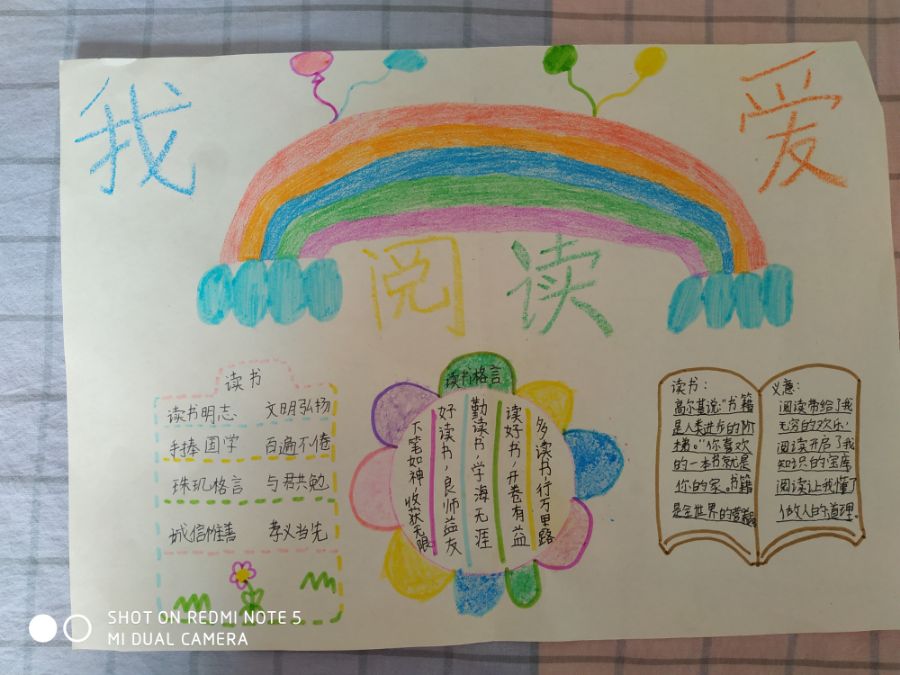 我 爱
阅 读
读书
读书明志 文明弘扬
手捧国学 百遍不倦
珠玑格言 与君共勉
诚信惟善 孝义当先
读书格言
多读书，行万里路
读好书，开卷有益
勤读书，学海无涯
好读书，良师益友
下笔如神，收获无限
读书：
高尔基说："书籍
是人类进步的阶
梯。"你喜欢
的一本书就是
你的家。书籍
是全世界的
义意：
阅读带给了我
无穷的欢乐.
阅读开启了我
知识的宝库
阅读让我懂了
做人的道理.
SHOT ON REDMI NOTE 5
MI DUAL CAMERA